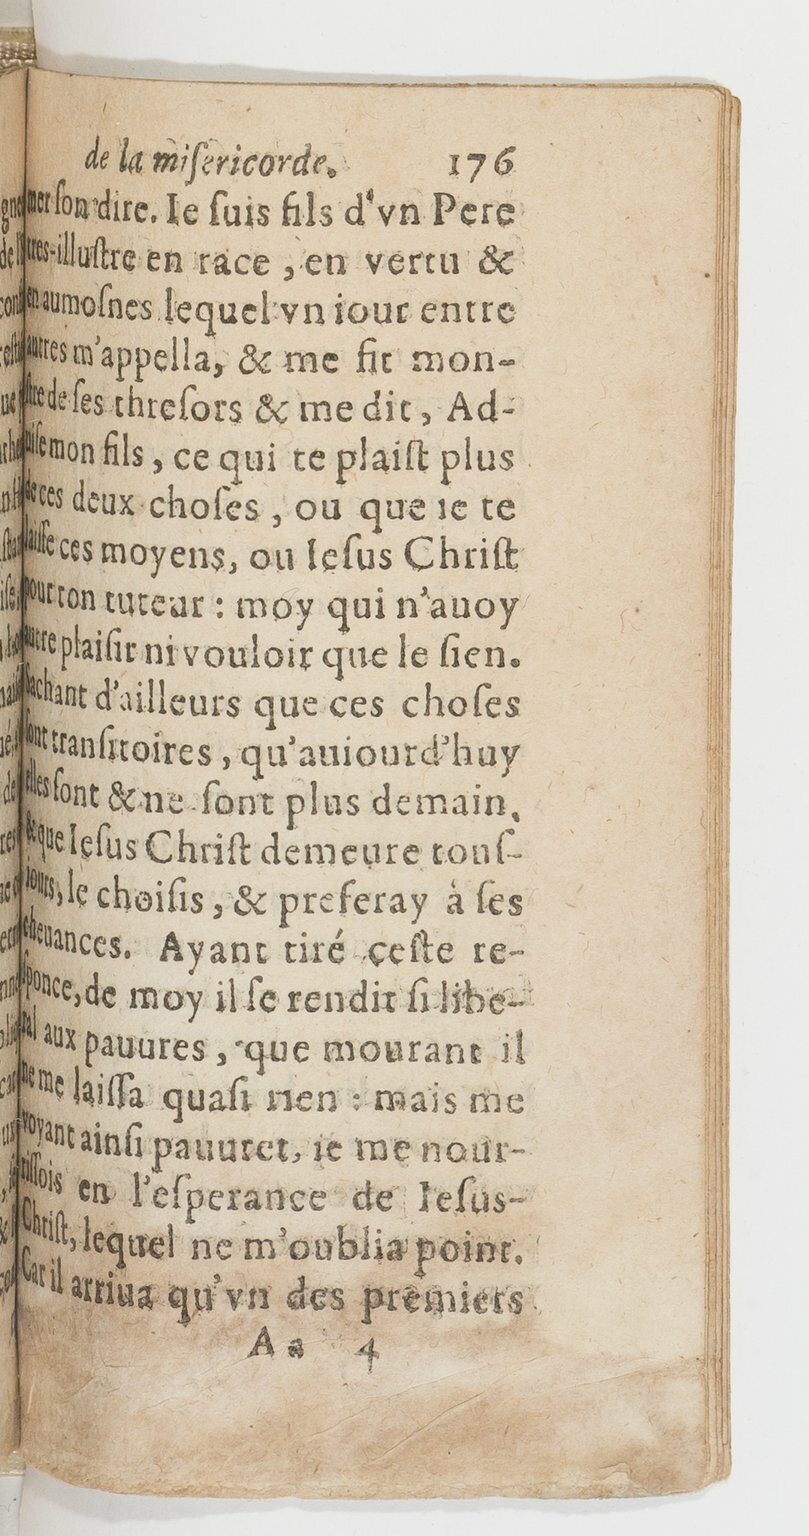 de la miſericorde. 176
mer ſon dire. Ie ſuis fils d'vn Pere
tres-illuſtre en race , en vertu &
en aumoſnes lequel vn iour entre
autres m'appella, & me fit mon-
ſtre de ſes threſors & me dit , Ad-
uiſe mon fils , ce qui te plaiſt plus
de ces deux choſes , ou que ie te
laiſſe ces moyens, ou Ieſus Chriſt
pour ton tuteur : moy qui n'auoy
autre plaiſir ni vouloir que le ſien.
ſachant d'ailleurs que ces choſes
ſont tranſitoires , qu'auiourd'huy
elles ſont & ne ſont plus demain,
& que Ieſus Chriſt demeure touſ-
iours, le choiſis , & preferay à ſes
cheuances. Ayant tiré ceſte re-
ſponce, de moy il ſe rendit ſi libe-
ral aux pauures , que mourant il
ne me laiſſa quaſi rien : mais me
voyant ainſi pauuret, ie me nour-
riſſois en l'eſperance de Ieſus-
Chriſt, lequel ne m'oublia point.
Car il arriua qu'vn des premiers
A a 4